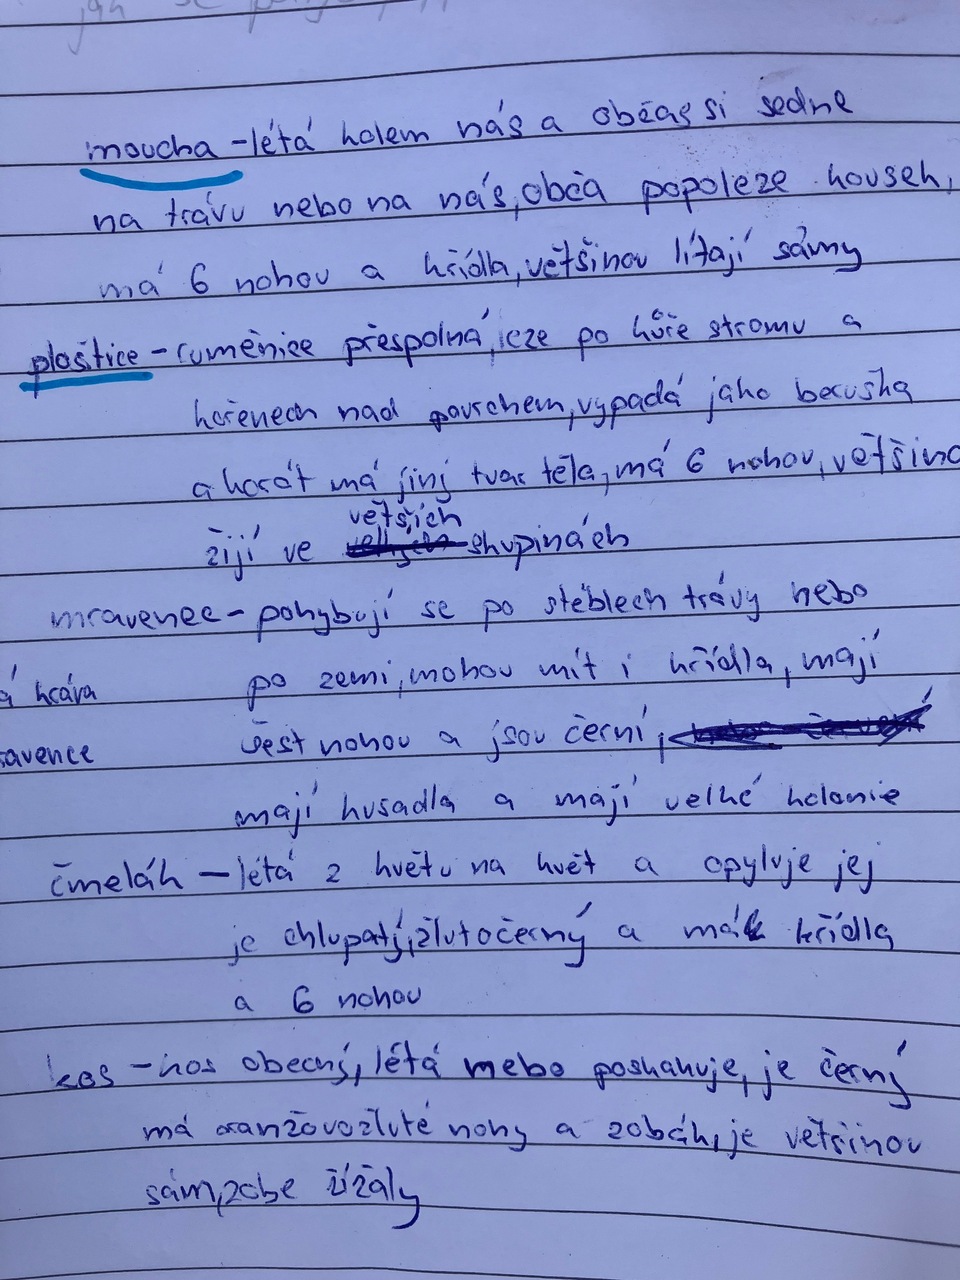 jak se
moucha - létá kolem nás a občas si sedne
na trávu nebo na nás, obča popoleze kousek,
má 6 nohou a křídla, většinou lítají sámy
ploštice - ruměnice přespolná, leze po kůře stromu a
kořenech nad povrchem, vypadá jako beruška
akorát má jiný tvar těla, má 6 nohou, většino
žijí ve větších skupinách
mravenec - pohybují se po stéblech trávy nebo
po zemi, mohou mít i křídla, mají
á kráva
šest nohou a jsou černí,
ravence
mají kusadla a mají velké kolonie
čmelák - létá z květu na květ a opyluje jej
je chlupatý, žlutočerný a má křídla
a 6 nohou
kos - kos obecný, létá nebo poskakuje, je černý
má oranžovožluté nohy a zobák, je většinou
sám, zobe žížaly